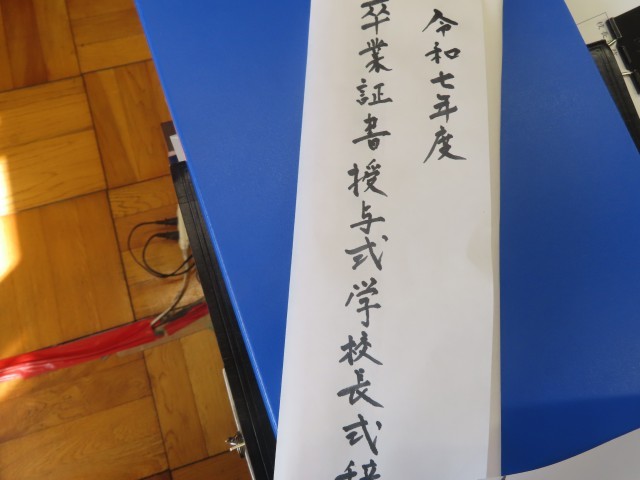 令和七年度
卒業証書授与式学校長式辞